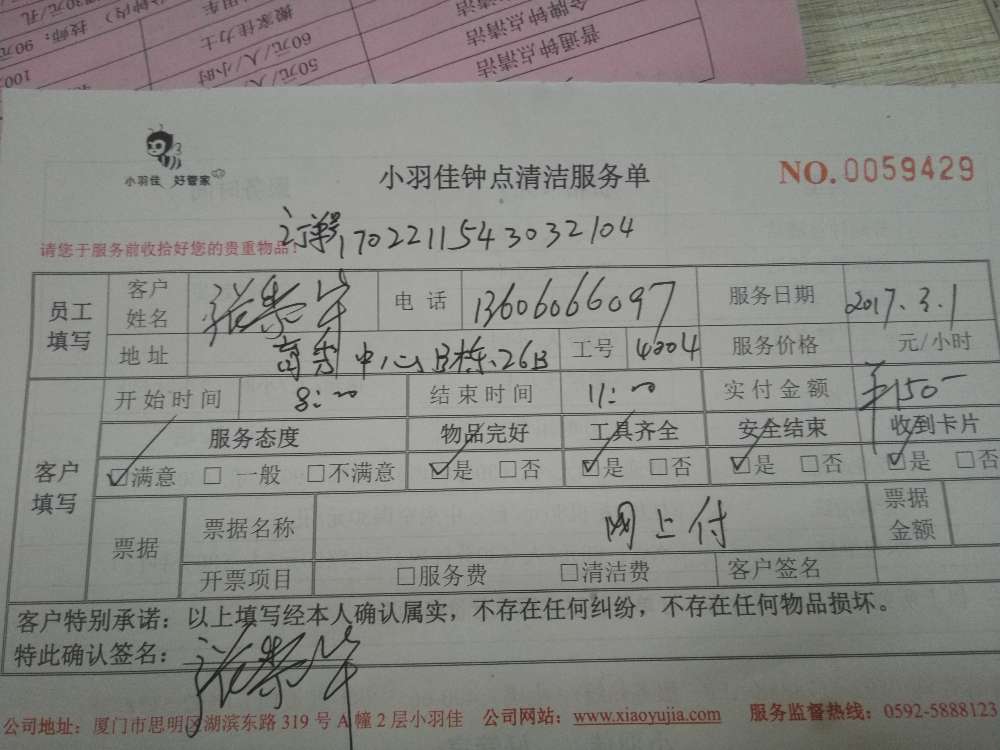 普通钟点清洁
金牌钟点清洁
50元/人/
60元/人/小时
搬家佳力士
小羽佳 好管家
小羽佳钟点清洁服务单
NO. 0059429
请您于服务前收拾好您的贵重物品！
订单号170221154303 2104
员工填写 客户姓名 电话 13606066097 服务日期 2017.3.1
地址 中心B栋26B 工号 4204 服务价格 元/小时
客户填写 开始时间 8:00 结束时间 11:00 实付金额 ¥150-
服务态度 物品完好 工具齐全 安全结束 收到卡片
☑满意 □ 一般 □不满意 ☑是 □否 ☑是 □否 ☑是 □否 ☑是 □否
票据 票据名称 网上付 票据金额
开票项目 □服务费 □清洁费 客户签名
客户特别承诺：以上填写经本人确认属实，不存在任何纠纷，不存在任何物品损坏。
特此确认签名：
公司地址：厦门市思明区湖滨东路 319 号 A 幢 2 层小羽佳 公司网站：www.xiaoyujia.com 服务监督热线：0592-5888123